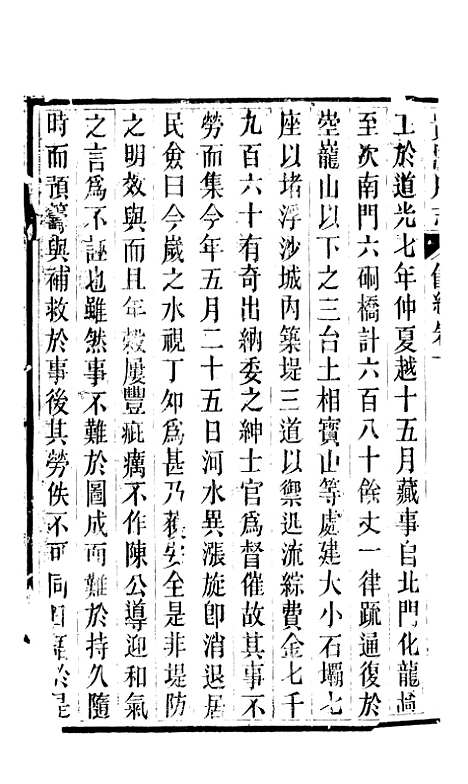 工於道光七年仲夏越十五月蕆事自北門化龍橋
至次南門六硐橋計六百八十餘丈一律疏通復於
螺龍山以下之三台土相寶山等處建大小石壩七
座以堵浮沙城內築堤三道以禦迅流綜費金七千
九百六十有奇出納委之紳士官爲督催故其事不
勞而集今年五月二十五日河水異漲旋卽消退居
民僉曰今歲之水視丁卯爲甚乃獲安全是非堤防
之明效與而且年穀屢豐疵癘不作陳公導迎和氣
之言爲不誣也雖然事不難於圖成而難於持久隨
時而預籌與補救於事後其勞佚不可同
於是